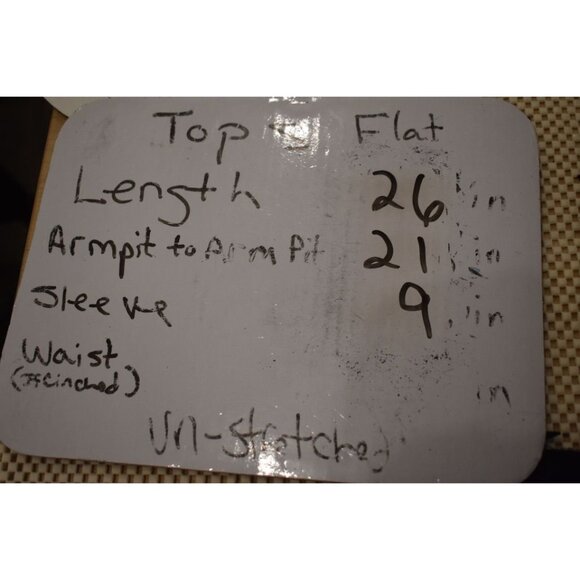 Top Flat
Length 26 in
Armpit to Arm Pit 21 in
Sleeve 9 in
Waist
(If Cinched) in
Un-stretched